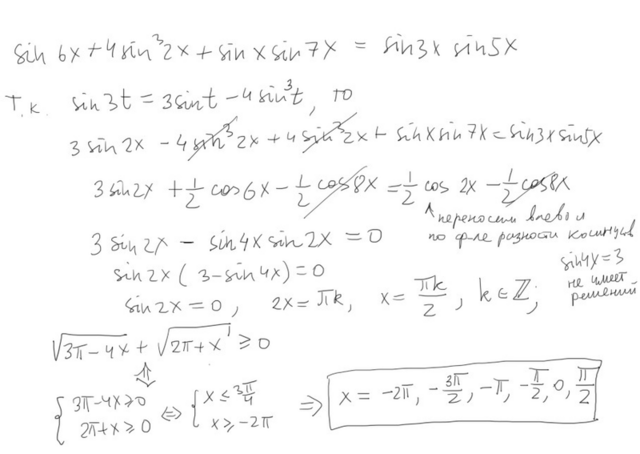 sin 6x + 4 sin³ 2x + sin x sin 7x = sin 3x sin 5x
Т.к. sin 3t = 3 sin t - 4 sin³ t, то
3 sin 2x - 4 sin³ 2x + 4 sin³ 2x + sin x sin 7x = sin 3x sin 5x
3 sin 2x + 1/2 cos 6x - 1/2 cos 8x = 1/2 cos 2x - 1/2 cos 8x
↑ переносим влево и
по ф-ле разности косинусов
3 sin 2x - sin 4x sin 2x = 0
sin 2x (3 - sin 4x) = 0
sin 4x = 3
не имеет
решений
sin 2x = 0, 2x = πk, x = πk/2, k ∈ ℤ;
√(3π - 4x) + √(2π + x) ≥ 0
⇕
{ 3π - 4x ≥ 0 ⇔ { x ≤ 3π/4 ⇒ x = -2π, -3π/2, -π, -π/2, 0, π/2
{ 2π + x ≥ 0 { x ≥ -2π